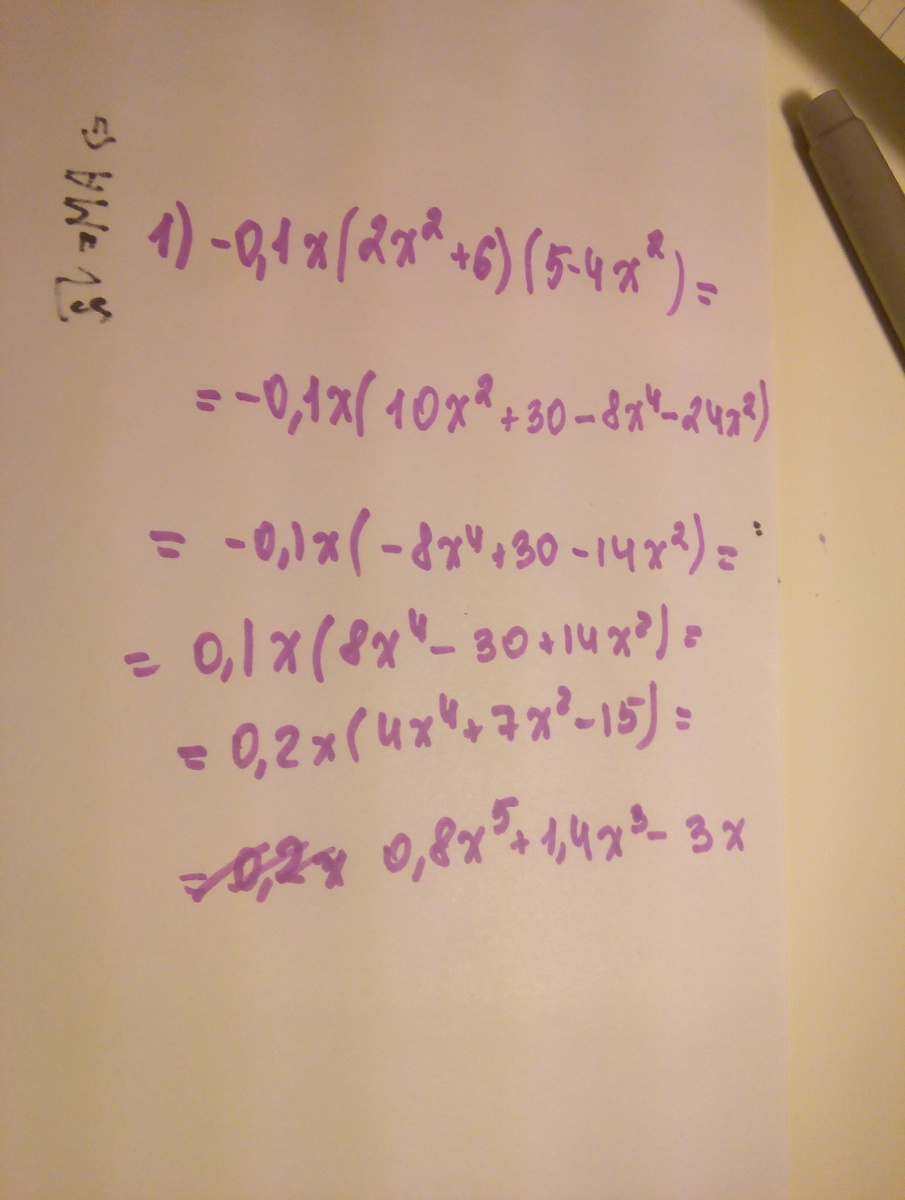 1) -0,1x(2x²+6)(5-4x²)=
= -0,1x(10x²+30-8x⁴-24x²)
= -0,1x(-8x⁴+30-14x²)=
= 0,1x(8x⁴-30+14x²)=
= 0,2x(4x⁴+7x²-15)=
= 0,2x 0,8x⁵+1,4x³-3x